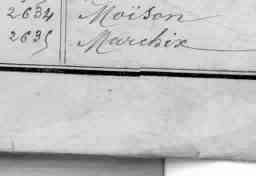 2634 Moïson
2635 Marchix